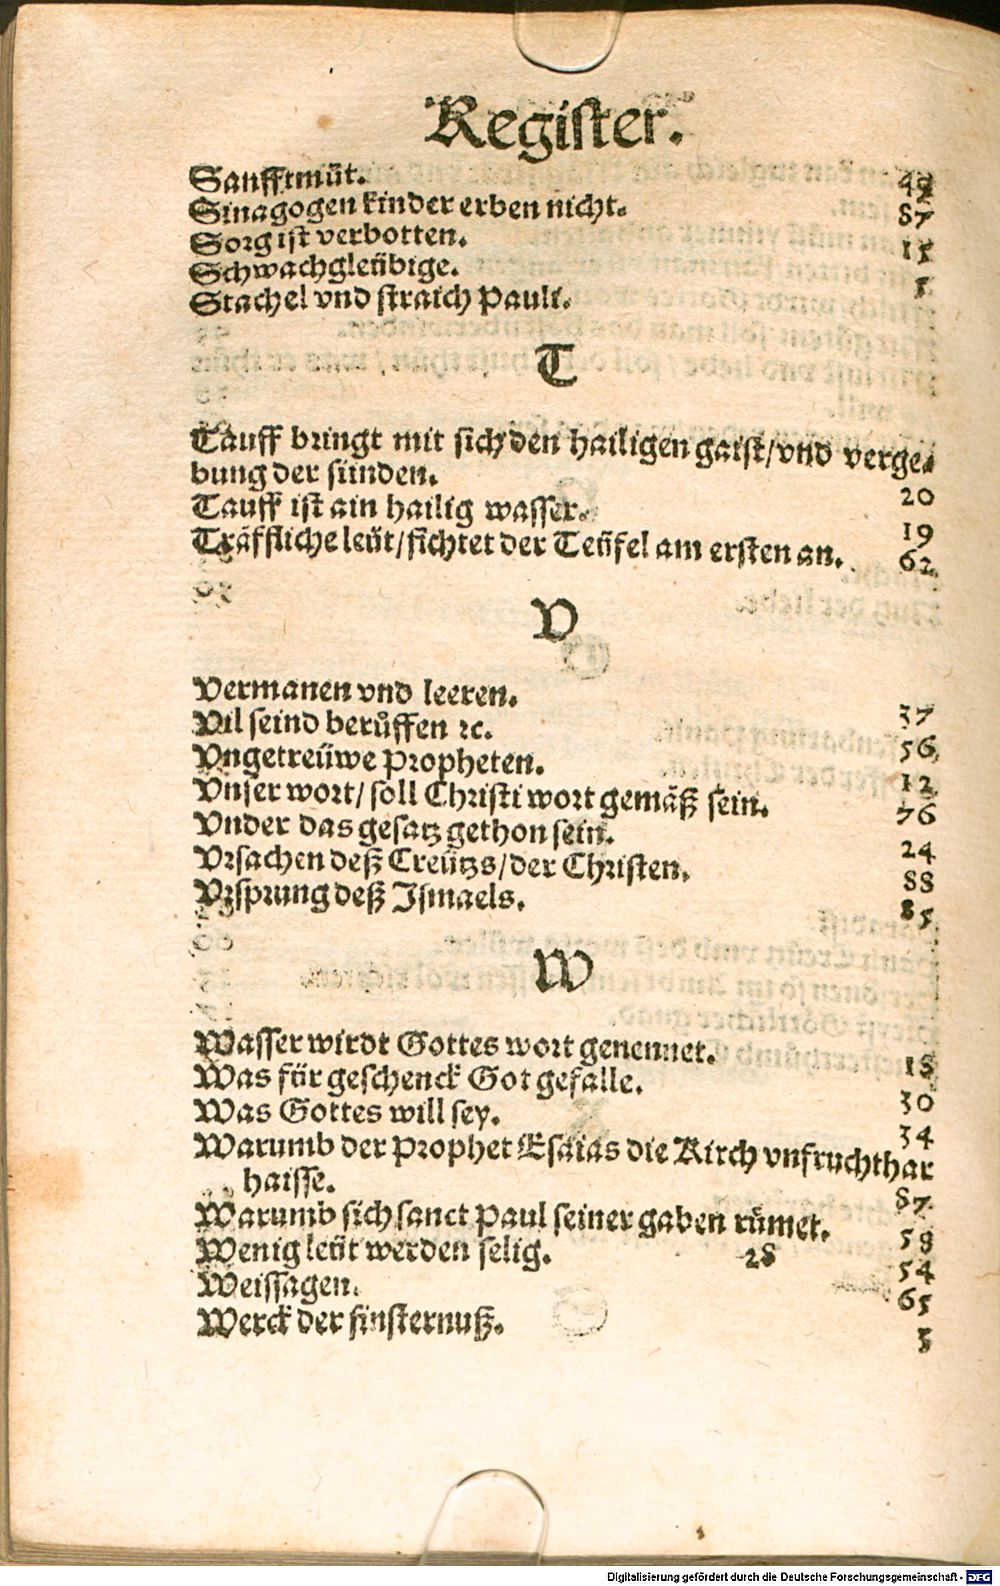 Register.
Sanfftmüt. 49
Sinagogen kinder erben nicht. 87
Sorg ist verbotten. 15
Schwachgleübige. 5
Stachel vnd straich Pauli.
T
Tauff bringt mit sich den hailigen gaist/vnd verge-
bung der sünden. 20
Tauff ist ain hailig wasser. 19
Träffliche leüt/fichtet der Teüfel am ersten an. 62
V
Vermanen vnd leeren. 37
Vil seind berůffen ꝛc. 56
Vngetreüwe Propheten. 12
Vnser wort/ soll Christi wort gemäß sein. 76
Vnder das gesatz gethon sein. 24
Vrsachen deß Creützs/der Christen. 88
Vrsprung deß Ismaels. 85
W
Wasser wirdt Gottes wort genennet. 18
Was für geschenck Got gefalle. 30
Was Gottes will sey. 34
Warumb der Prophet Esaias die Kirch vnfruchthar
haisse. 87
Warumb sich sanct Paul seiner gaben rümet. 58
Wenig leüt werden selig. 28 54
Weissagen. 65
Werck der finsternuß. 5
Digitalisierung gefördert durch die Deutsche Forschungsgemeinschaft - DFG